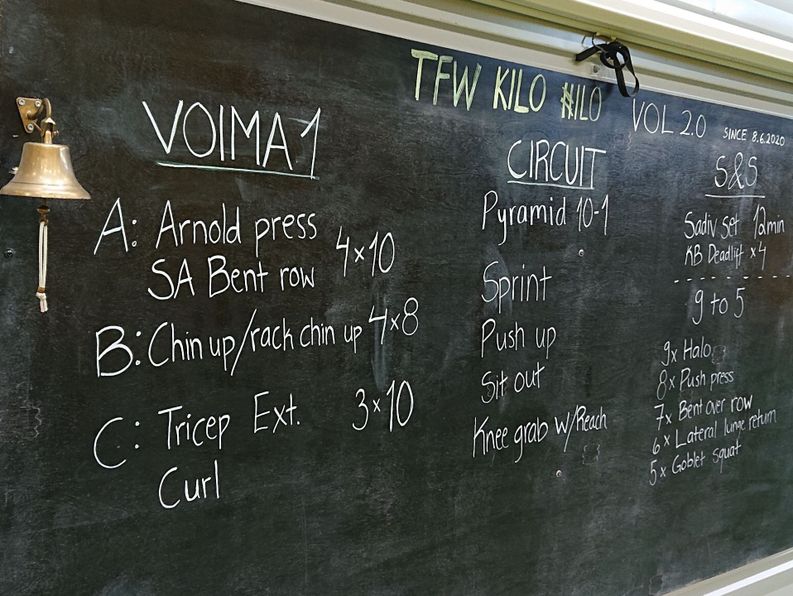 TFW KILO KILO VOL 2.0 SINCE 8.6.2020
VOIMA 1
A: Arnold press
SA Bent row 4x10
B: Chin up/rack chin up 4x8
C: Tricep Ext. 3x10
Curl
CIRCUIT
Pyramid 10-1
Sprint
Push up
Sit out
Knee grab w/Reach
S&S
Sadiv set 12min
KB Deadlift x4
9 to 5
9x Halo
8x Push press
7x Bent over row
6x Lateral lunge return
5x Goblet squat